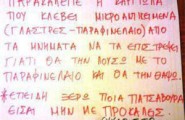 ΠΑΡΑΚΑΛΕΙΤΕ Η ΚΑΤΙΝΑ
ΠΟΥ ΚΛΕΒΕΙ ΜΙΚΡΟΑΝΤΙΚΕΙΜΕΝΑ
(ΓΛΑΣΤΡΕΣ-ΠΑΡΑΦΙΝΕΛΑΙΟ) ΑΠΟ
ΤΑ ΜΝΗΜΑΤΑ ΝΑ ΤΑ ΕΠΙΣΤΡΕΨΕΙ
ΓΙΑΤΙ ΘΑ ΤΗΝ ΛΟΥΣΩ ΜΕ ΤΟ
ΠΑΡΑΦΙΝΕΛΑΙΟ ΚΑΙ ΘΑ ΤΗΝ ΘΑΨΩ.
*ΕΠΕΙΔΗ ΞΕΡΩ ΠΟΙΑ ΠΑΤΣΑΒΟΥΡΑ
ΕΙΣΑΙ ΜΗΝ ΜΕ ΠΡΟΚΑΛΕΣ.